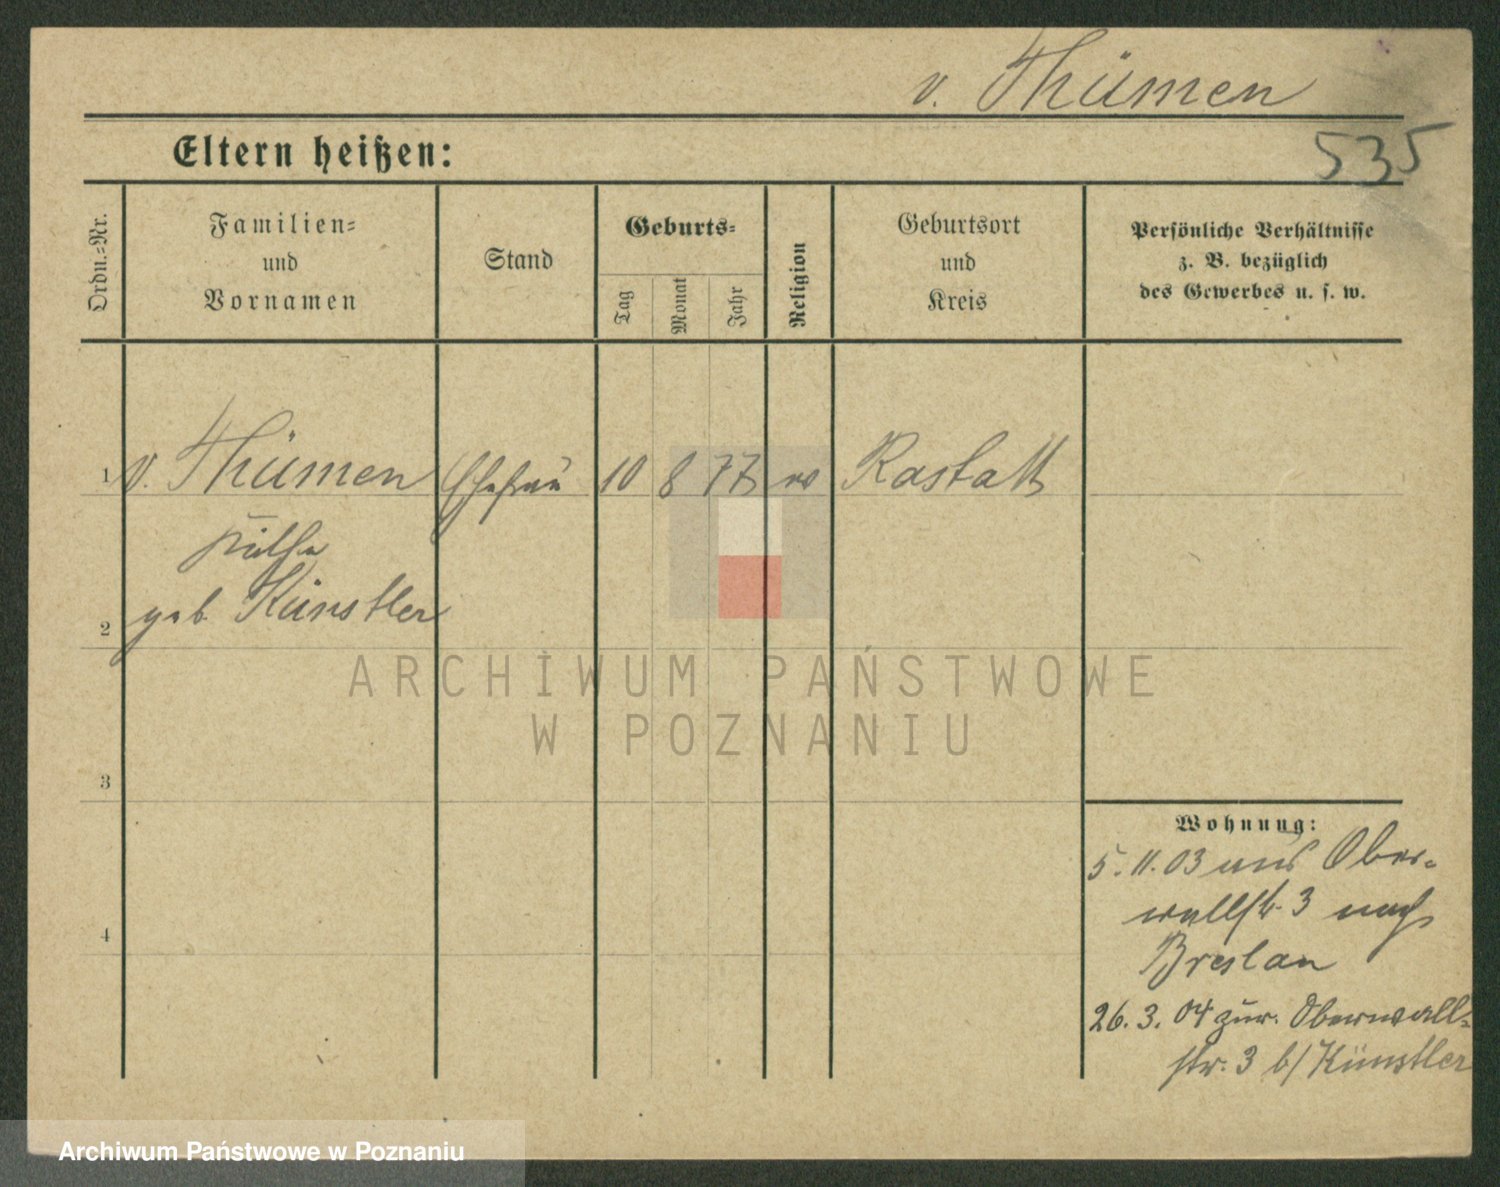 v. Thümen
535
Eltern heißen:
Ordn.-Nr.
Familien-
und
Vornamen
Stand
Geburts-
Tag
Monat
Jahr
Religion
Geburtsort
und
Kreis
Persönliche Verhältnisse
z. B. bezüglich
des Gewerbes u. s. w.
1 v. Thümen Ehefrau 10 8 77 ev Rastatt
geb Künstler
2
3
4
Wohnung:
5. 11. 03 aus Ober-
wallstr. 3 nach
Breslau
26. 3. 04 zur. Oberwall-
str. 3 b/ Künstler
ARCHIWUM PAŃSTWOWE
W POZNANIU
Archiwum Państwowe w Poznaniu